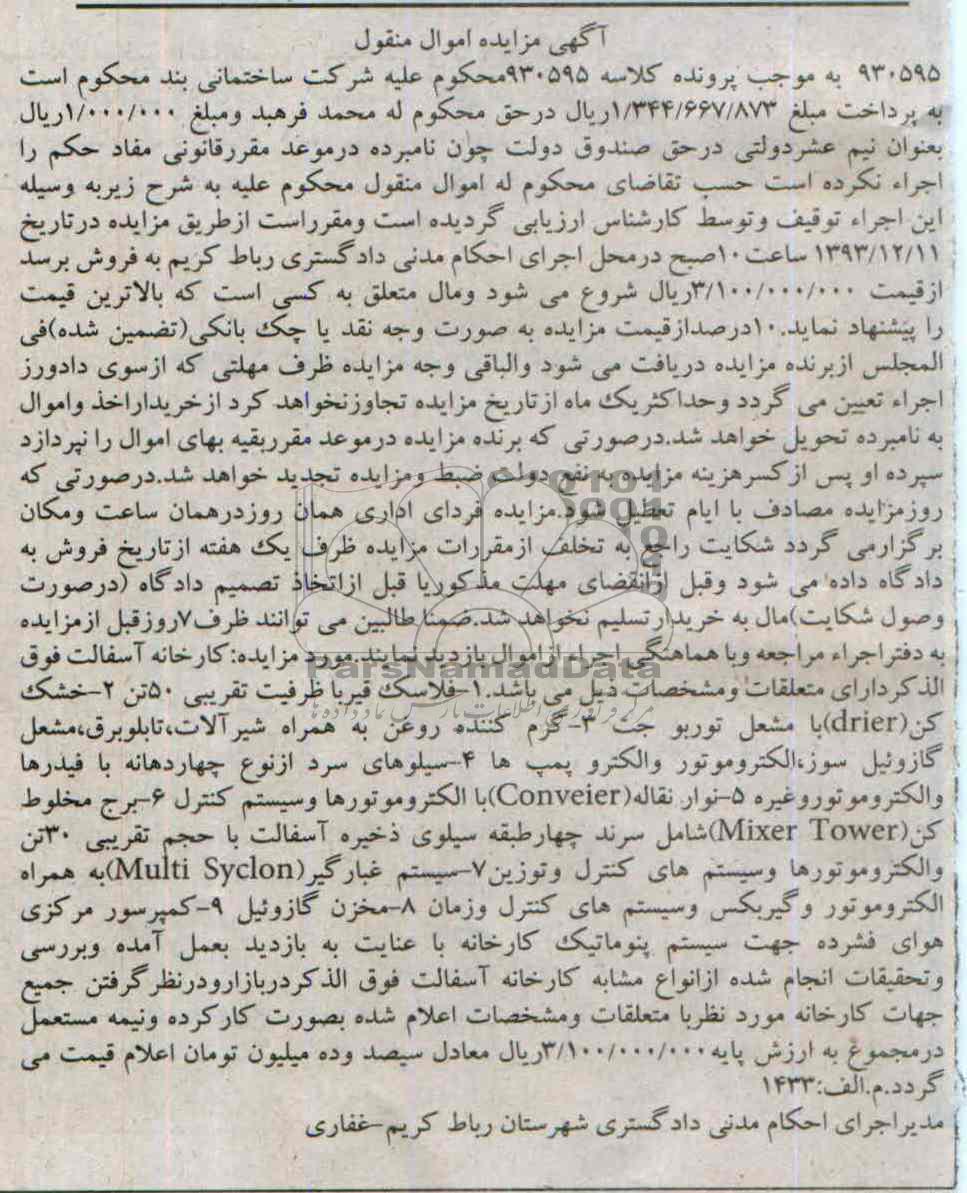 آگهی مزایده اموال منقول
۹۳۰۵۹۵ به موجب پرونده کلاسه ۹۳۰۵۹۵محکوم علیه شرکت ساختمانی بند محکوم است
به پرداخت مبلغ ۱/۳۴۴/۶۶۷/۸۷۳ریال درحق محکوم له محمد فرهبد ومبلغ ۱/۰۰۰/۰۰۰ریال
بعنوان نیم عشردولتی درحق صندوق دولت چون نامبرده درموعد مقررقانونی مفاد حکم را
اجراء نکرده است حسب تقاضای محکوم له اموال منقول محکوم علیه به شرح زیربه وسیله
این اجراء توقیف وتوسط کارشناس ارزیابی گردیده است ومقرراست ازطریق مزایده درتاریخ
۱۳۹۳/۱۲/۱۱ ساعت۱۰صبح درمحل اجرای احکام مدنی دادگستری رباط کریم به فروش برسد
ازقیمت ۳/۱۰۰/۰۰۰/۰۰۰ریال شروع می شود ومال متعلق به کسی است که بالاترین قیمت
را پیشنهاد نماید.۱۰درصدازقیمت مزایده به صورت وجه نقد یا چک بانکی(تضمین شده)فی
المجلس ازبرنده مزایده دریافت می شود والباقی وجه مزایده ظرف مهلتی که ازسوی دادورز
اجراء تعیین می گردد وحداکثریک ماه ازتاریخ مزایده تجاوزنخواهد کرد ازخریداراخذ واموال
به نامبرده تحویل خواهد شد.درصورتی که برنده مزایده درموعد مقرربقیه بهای اموال را نپردازد
سپرده او پس ازکسرهزینه مزایده به نفع دولت ضبط ومزایده تجدید خواهد شد.درصورتی که
روزمزایده مصادف با ایام تعطیل شود.مزایده فردای اداری همان روزدرهمان ساعت ومکان
برگزارمی گردد شکایت راجع به تخلف ازمقررات مزایده ظرف یک هفته ازتاریخ فروش به
دادگاه داده می شود وقبل ازانقضای مهلت مذکوریا قبل ازاتخاذ تصمیم دادگاه (درصورت
وصول شکایت)مال به خریدارتسلیم نخواهد شد.ضمنا طالبین می توانند ظرف۷روزقبل ازمزایده
به دفتراجراء مراجعه وبا هماهنگی اجراء ازاموال بازدید نمایند.مورد مزایده:کارخانه آسفالت فوق
ParsNamadData
الذکردارای متعلقات ومشخصات ذیل می باشد.۱-فلاسک قیربا ظرفیت تقریبی ۵۰تن ۲-خشک
کن(drier)با مشعل توربو جت ۳-گرم کننده روغن به همراه شیرآلات،تابلوبرق،مشعل
گازوئیل سوز،الکتروموتور والکترو پمپ ها ۴-سیلوهای سرد ازنوع چهاردهانه با فیدرها
والکتروموتوروغیره ۵-نوار نقاله(Conveier)با الکتروموتورها وسیستم کنترل ۶-برج مخلوط
کن(Mixer Tower)شامل سرند چهارطبقه سیلوی ذخیره آسفالت با حجم تقریبی ۳۰تن
والکتروموتورها وسیستم های کنترل وتوزین۷-سیستم غبارگیر(Multi Syclon)به همراه
الکتروموتور وگیربکس وسیستم های کنترل وزمان ۸-مخزن گازوئیل ۹-کمپرسور مرکزی
هوای فشرده جهت سیستم پنوماتیک کارخانه با عنایت به بازدید بعمل آمده وبررسی
وتحقیقات انجام شده ازانواع مشابه کارخانه آسفالت فوق الذکردربازارودرنظرگرفتن جمیع
جهات کارخانه مورد نظربا متعلقات ومشخصات اعلام شده بصورت کارکرده ونیمه مستعمل
درمجموع به ارزش پایه ۳/۱۰۰/۰۰۰/۰۰۰ریال معادل سیصد وده میلیون تومان اعلام قیمت می
گردد.م.الف:۱۴۳۳
مدیراجرای احکام مدنی دادگستری شهرستان رباط کریم-غفاری